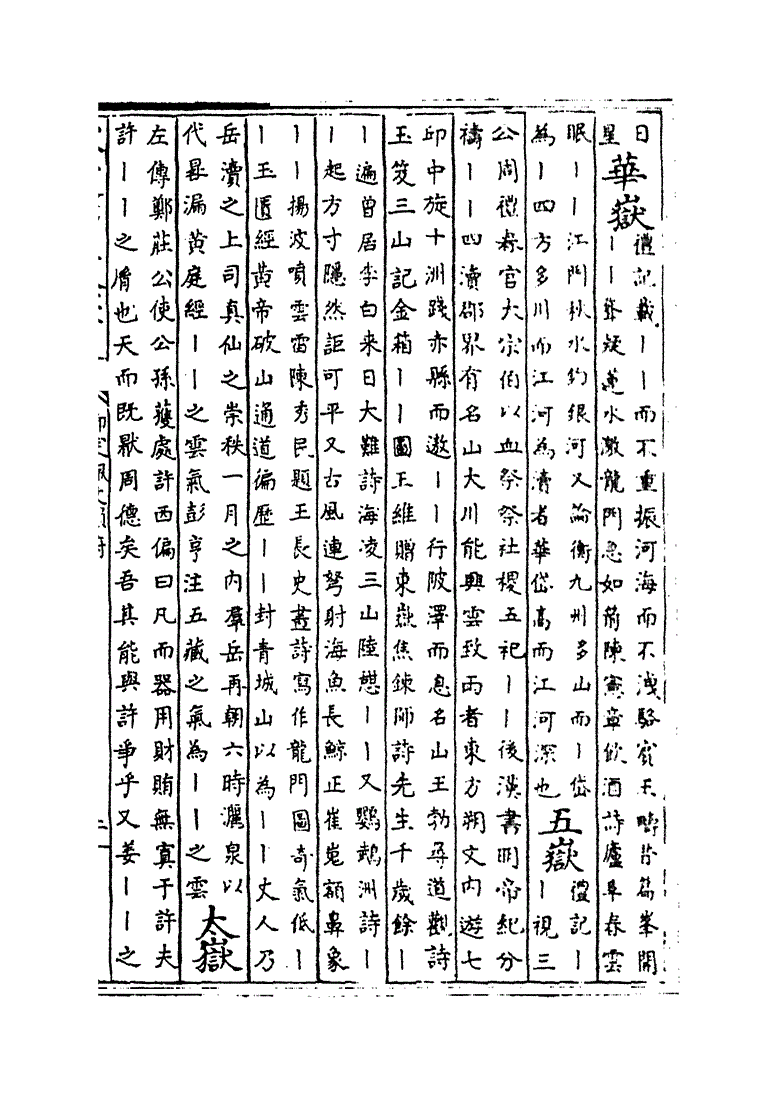 日
星
華嶽
禮記載丨丨而不重振河海而不洩駱賓王疇昔篇峯開
丨丨聳疑蓮水激龍門急如箭陳憲章飲酒詩廬阜春雲
眠丨丨江門秋水約銀河又論衡九州多山而丨岱
為丨四方多川而江河為瀆者華岱高而江河深也
五嶽
禮記丨
丨視三
公周禮春官大宗伯以血祭祭社稷五祀丨丨後漢書明帝紀分
禱丨丨四瀆郡界有名山大川能興雲致雨者東方朔文内遊七
邱中旋十洲踐赤縣而遨丨丨行陂澤而息名山王勃尋道觀詩
玉笈三山記金箱丨丨圖王維贈東嶽焦鍊師詩先生千歲餘丨
丨遍曾居李白来日大難詩海凌三山陸憩丨丨又鸚鵡洲詩丨
丨起方寸隱然詎可平又古風連弩射海魚長鯨正崔嵬額鼻象
丨丨揚波噴雲雷陳秀民題王長史畫詩寫作龍門圖奇氣低丨
丨玉匱經黄帝破山通道徧歷丨丨封青城山以為丨丨丈人乃
岳瀆之上司真仙之崇秩一月之内羣岳再朝六時灑泉以
代晷漏黄庭經丨丨之雲氣彭亨注五藏之氣為丨丨之雲
太嶽
左傳鄭莊公使公孫獲處許西偏曰凡而器用財賄無寘于許夫
許丨丨之胤也天而既厭周德矣吾其能與許爭乎又姜丨丨之